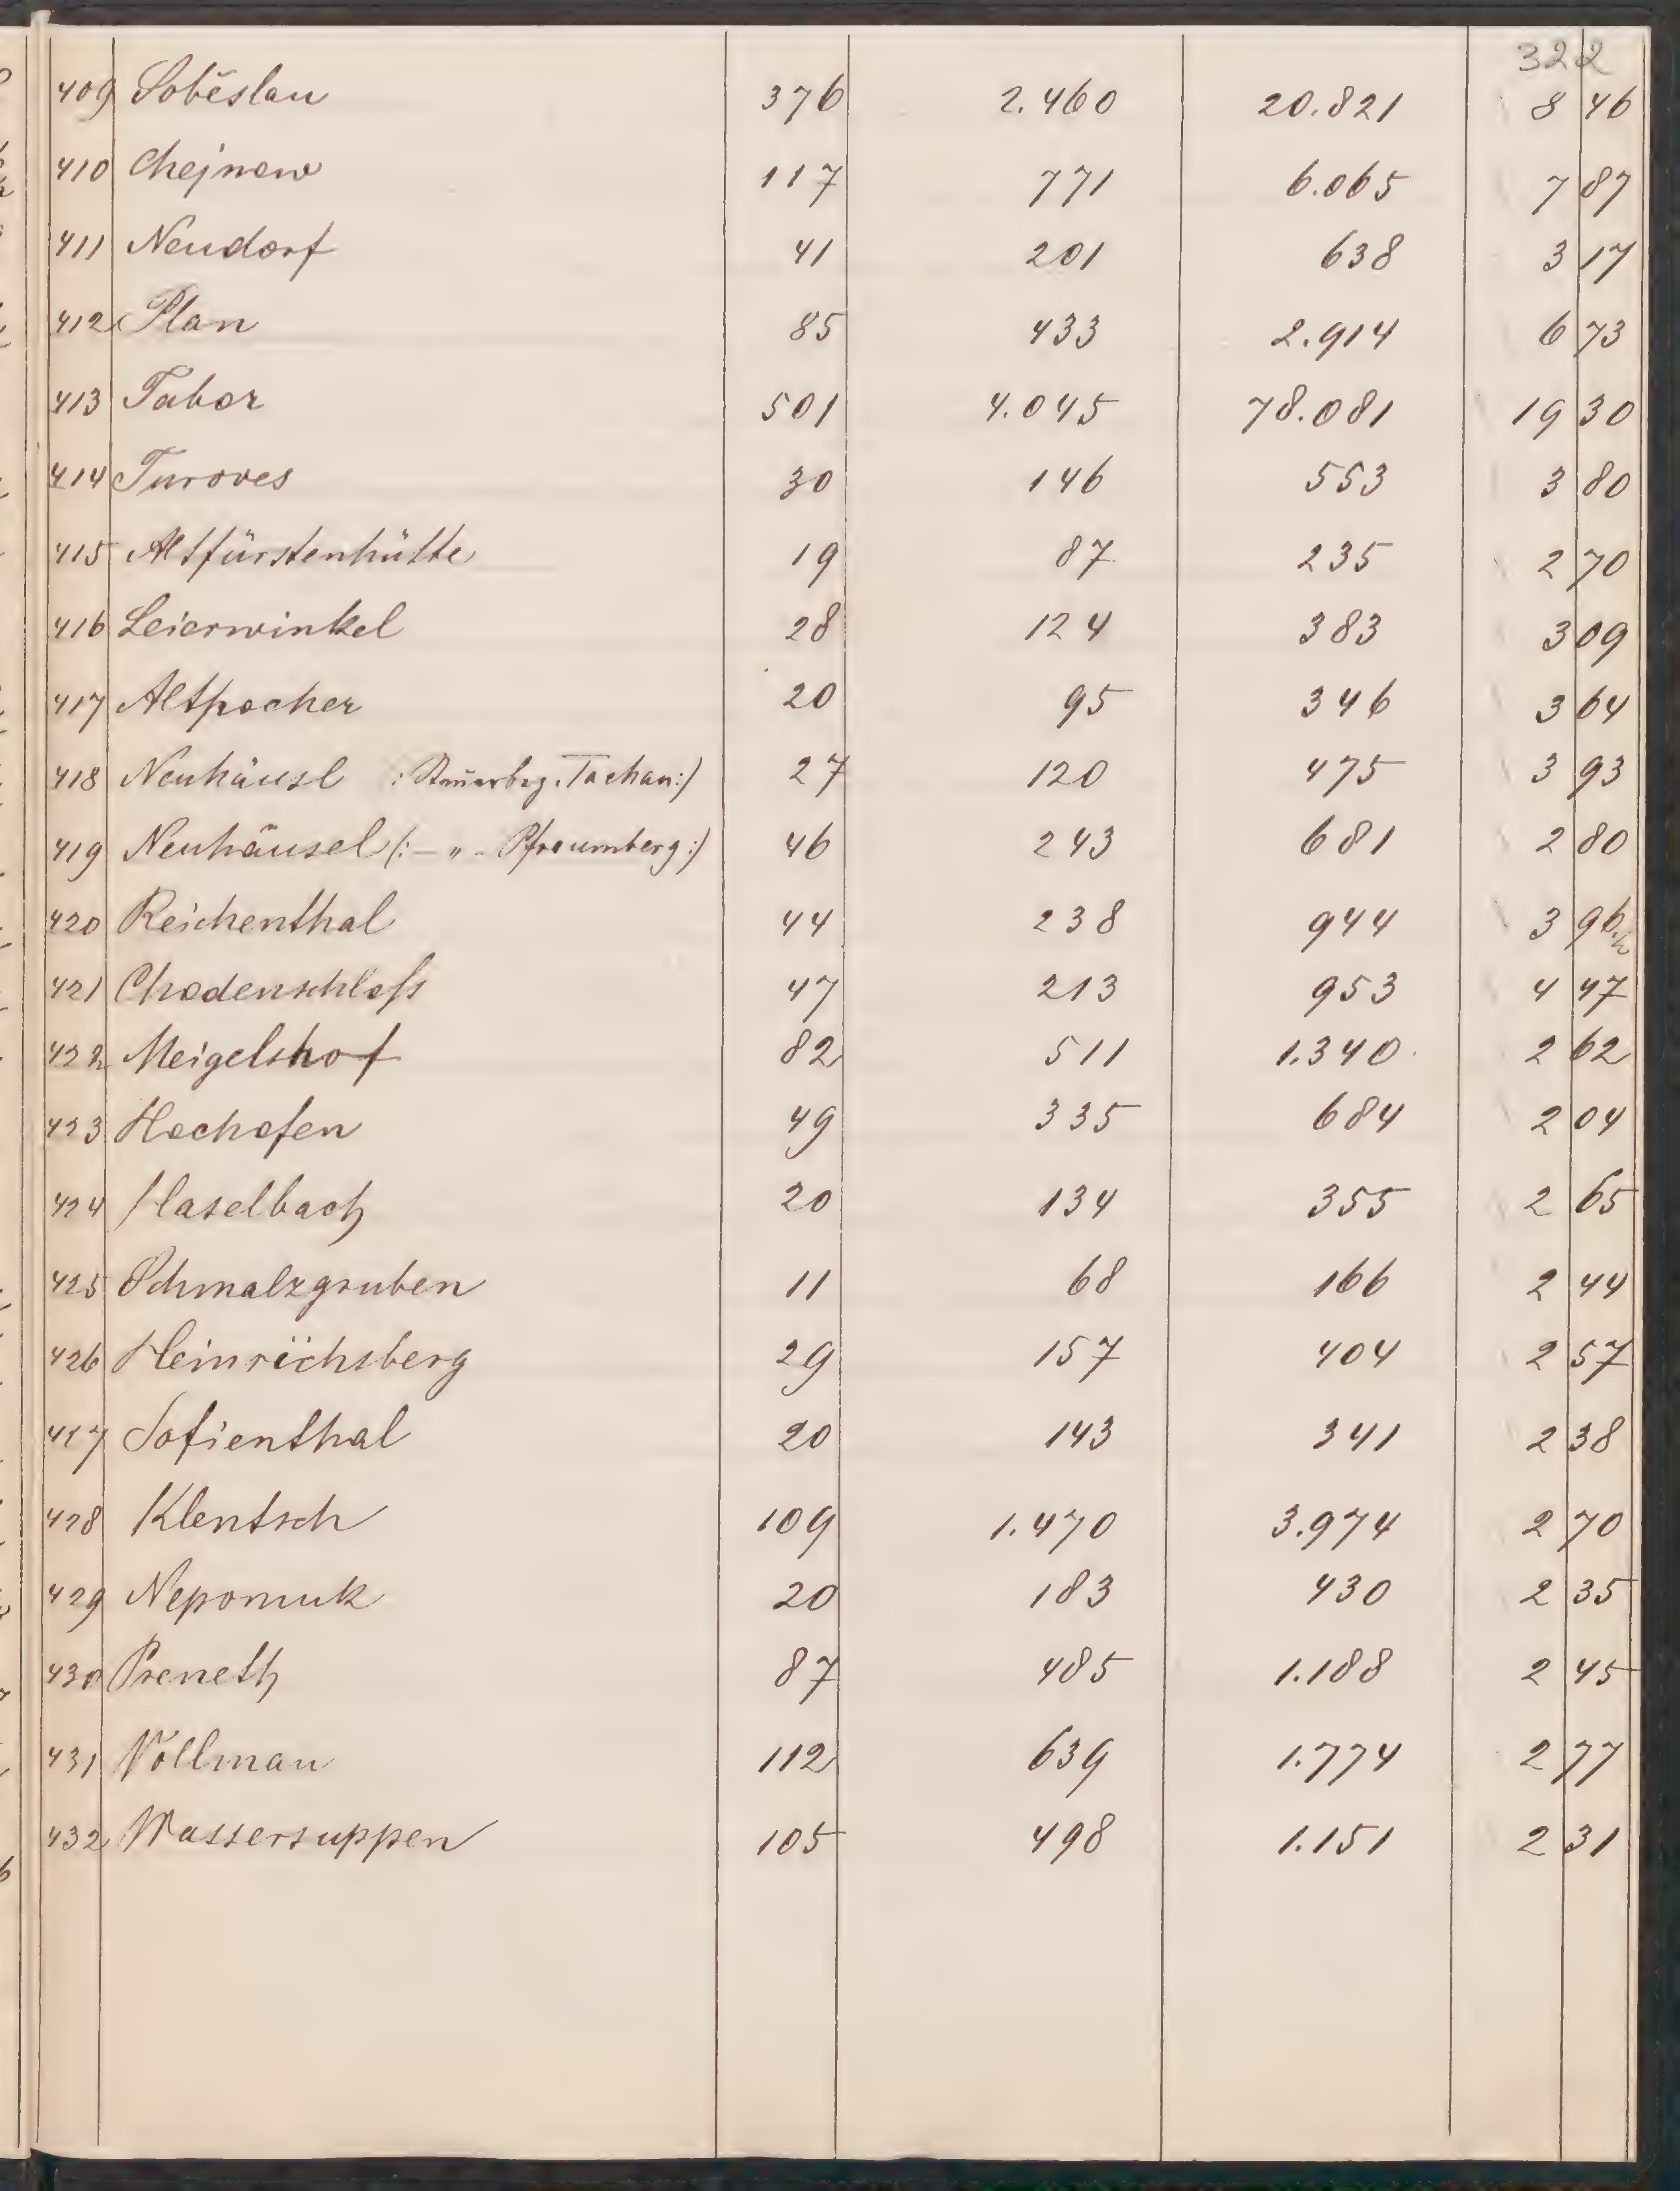 322
409 Soběslau 376 2.460 20.821 8 46
410 Chejnow 117 771 6.065 7 87
411 Neudorf 41 201 638 3 17
412 Plan 85 433 2.914 6 73
413 Tabor 501 4.045 78.081 19 30
414 Turoves 30 146 553 3 80
415 Altfürstenhütte 19 87 235 2 70
416 Leierwinkel 28 124 383 3 09
417 Altpocher 20 95 346 3 64
418 Neuhäusl : Steuerbzg. Tachau:) 27 120 475 3 93
419 Neuhäusel (: – „ – Pfraumberg:) 46 243 681 2 80
420 Reichenthal 44 238 944 3 96
421 Chodenschloß 47 213 953 4 47
422 Meigelshof 82 511 1.340 2 62
423 Hochofen 49 335 684 2 04
424 Haselbach 20 134 355 2 65
425 Schmalzgruben 11 68 166 2 44
426 Heinrichsberg 29 157 404 2 57
427 Sofienthal 20 143 341 2 38
428 Klentsch 109 1.470 3.974 2 70
429 Nepomuk 20 183 430 2 35
430 Preneth 87 485 1.188 2 45
431 Vollmau 112 639 1.774 2 77
432 Wassersuppen 105 498 1.151 2 31